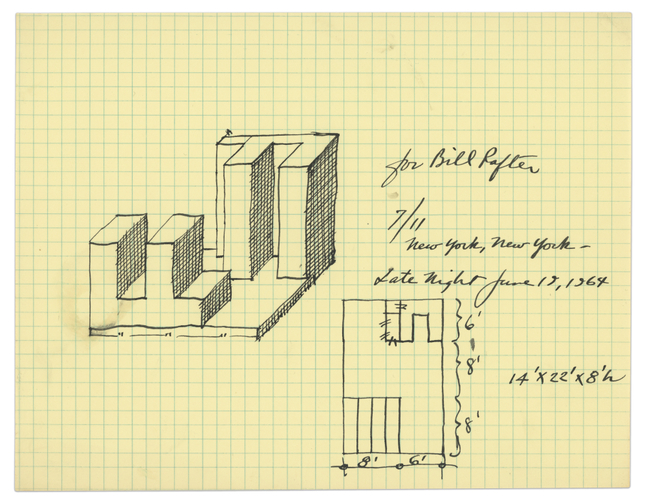 for Bill Rafter
7/11
New York, New York –
Late Night June 19, 1964
6'
8'
14'x22'x8'h
8'
8' 6'